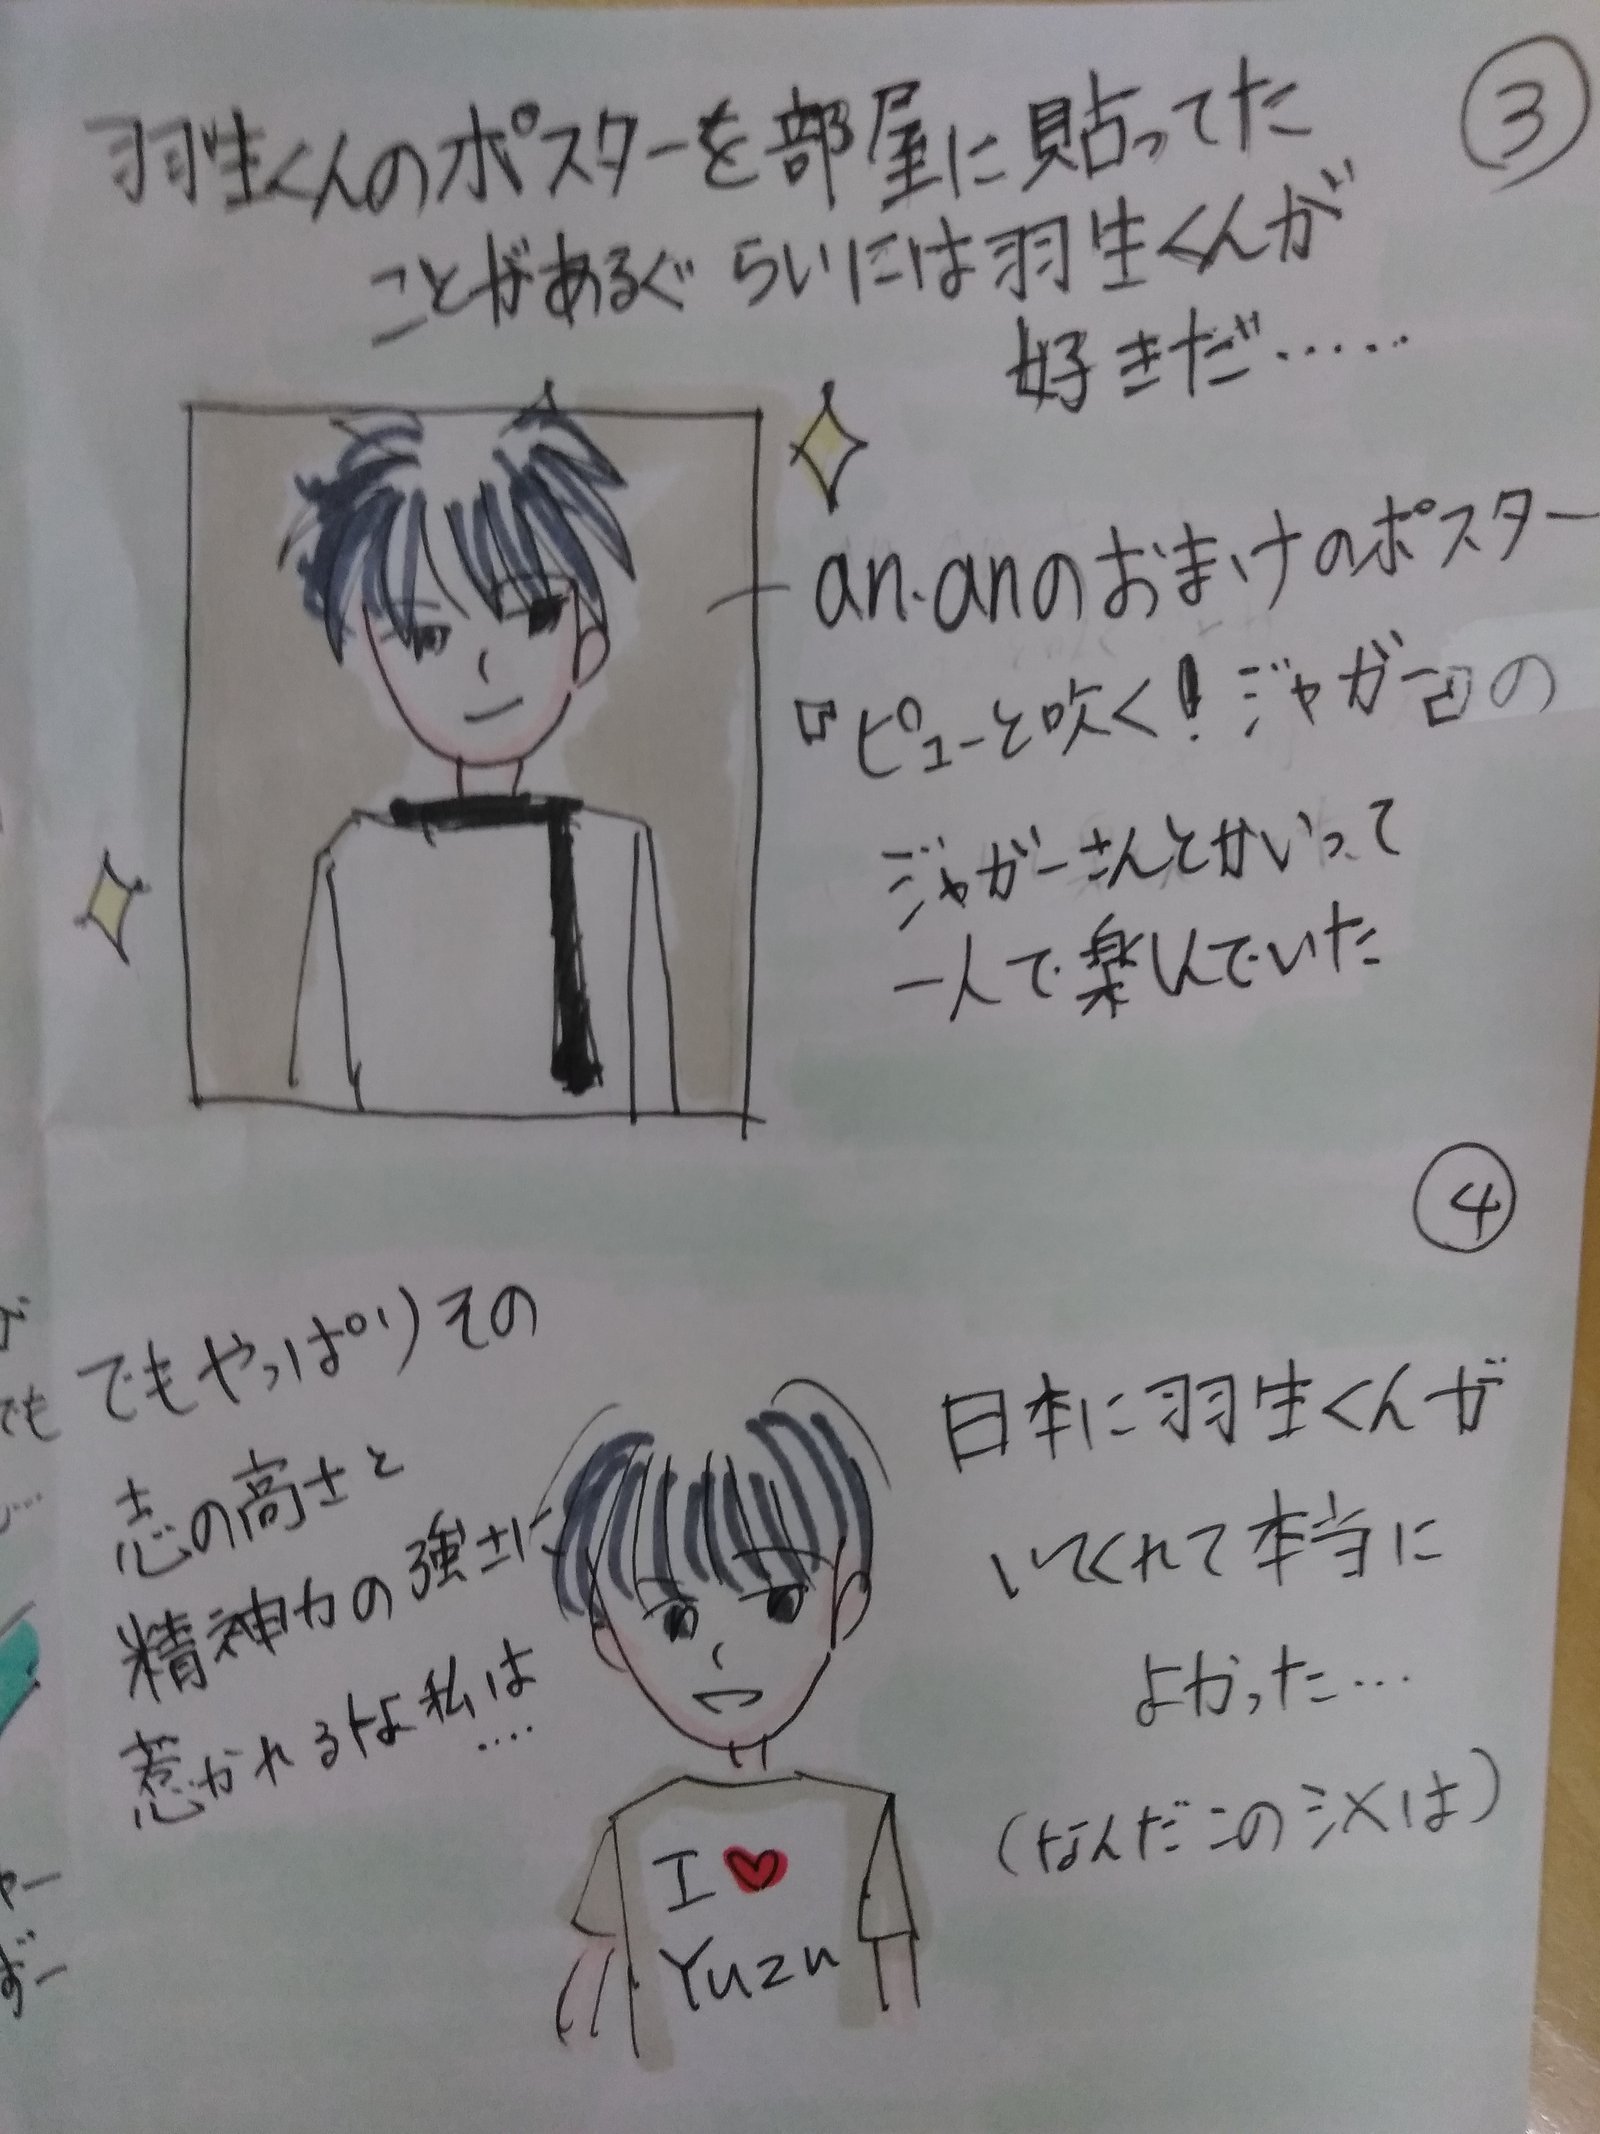 ③
羽生くんのポスターを部屋に貼ってた
ことがあるぐらいには羽生くんが
好きだ……
an・anのおまけのポスター
『ピューと吹く!ジャガー』の
ジャガーさんとかいって
一人で楽しんでいた
④
でもやっぱりその
志の高さと
精神力の強さに
惹かれるよ私は
…
日本に羽生くんが
いてくれて本当に
よかった…
(なんだこのシメは)
I ♥
Yuzu
でも